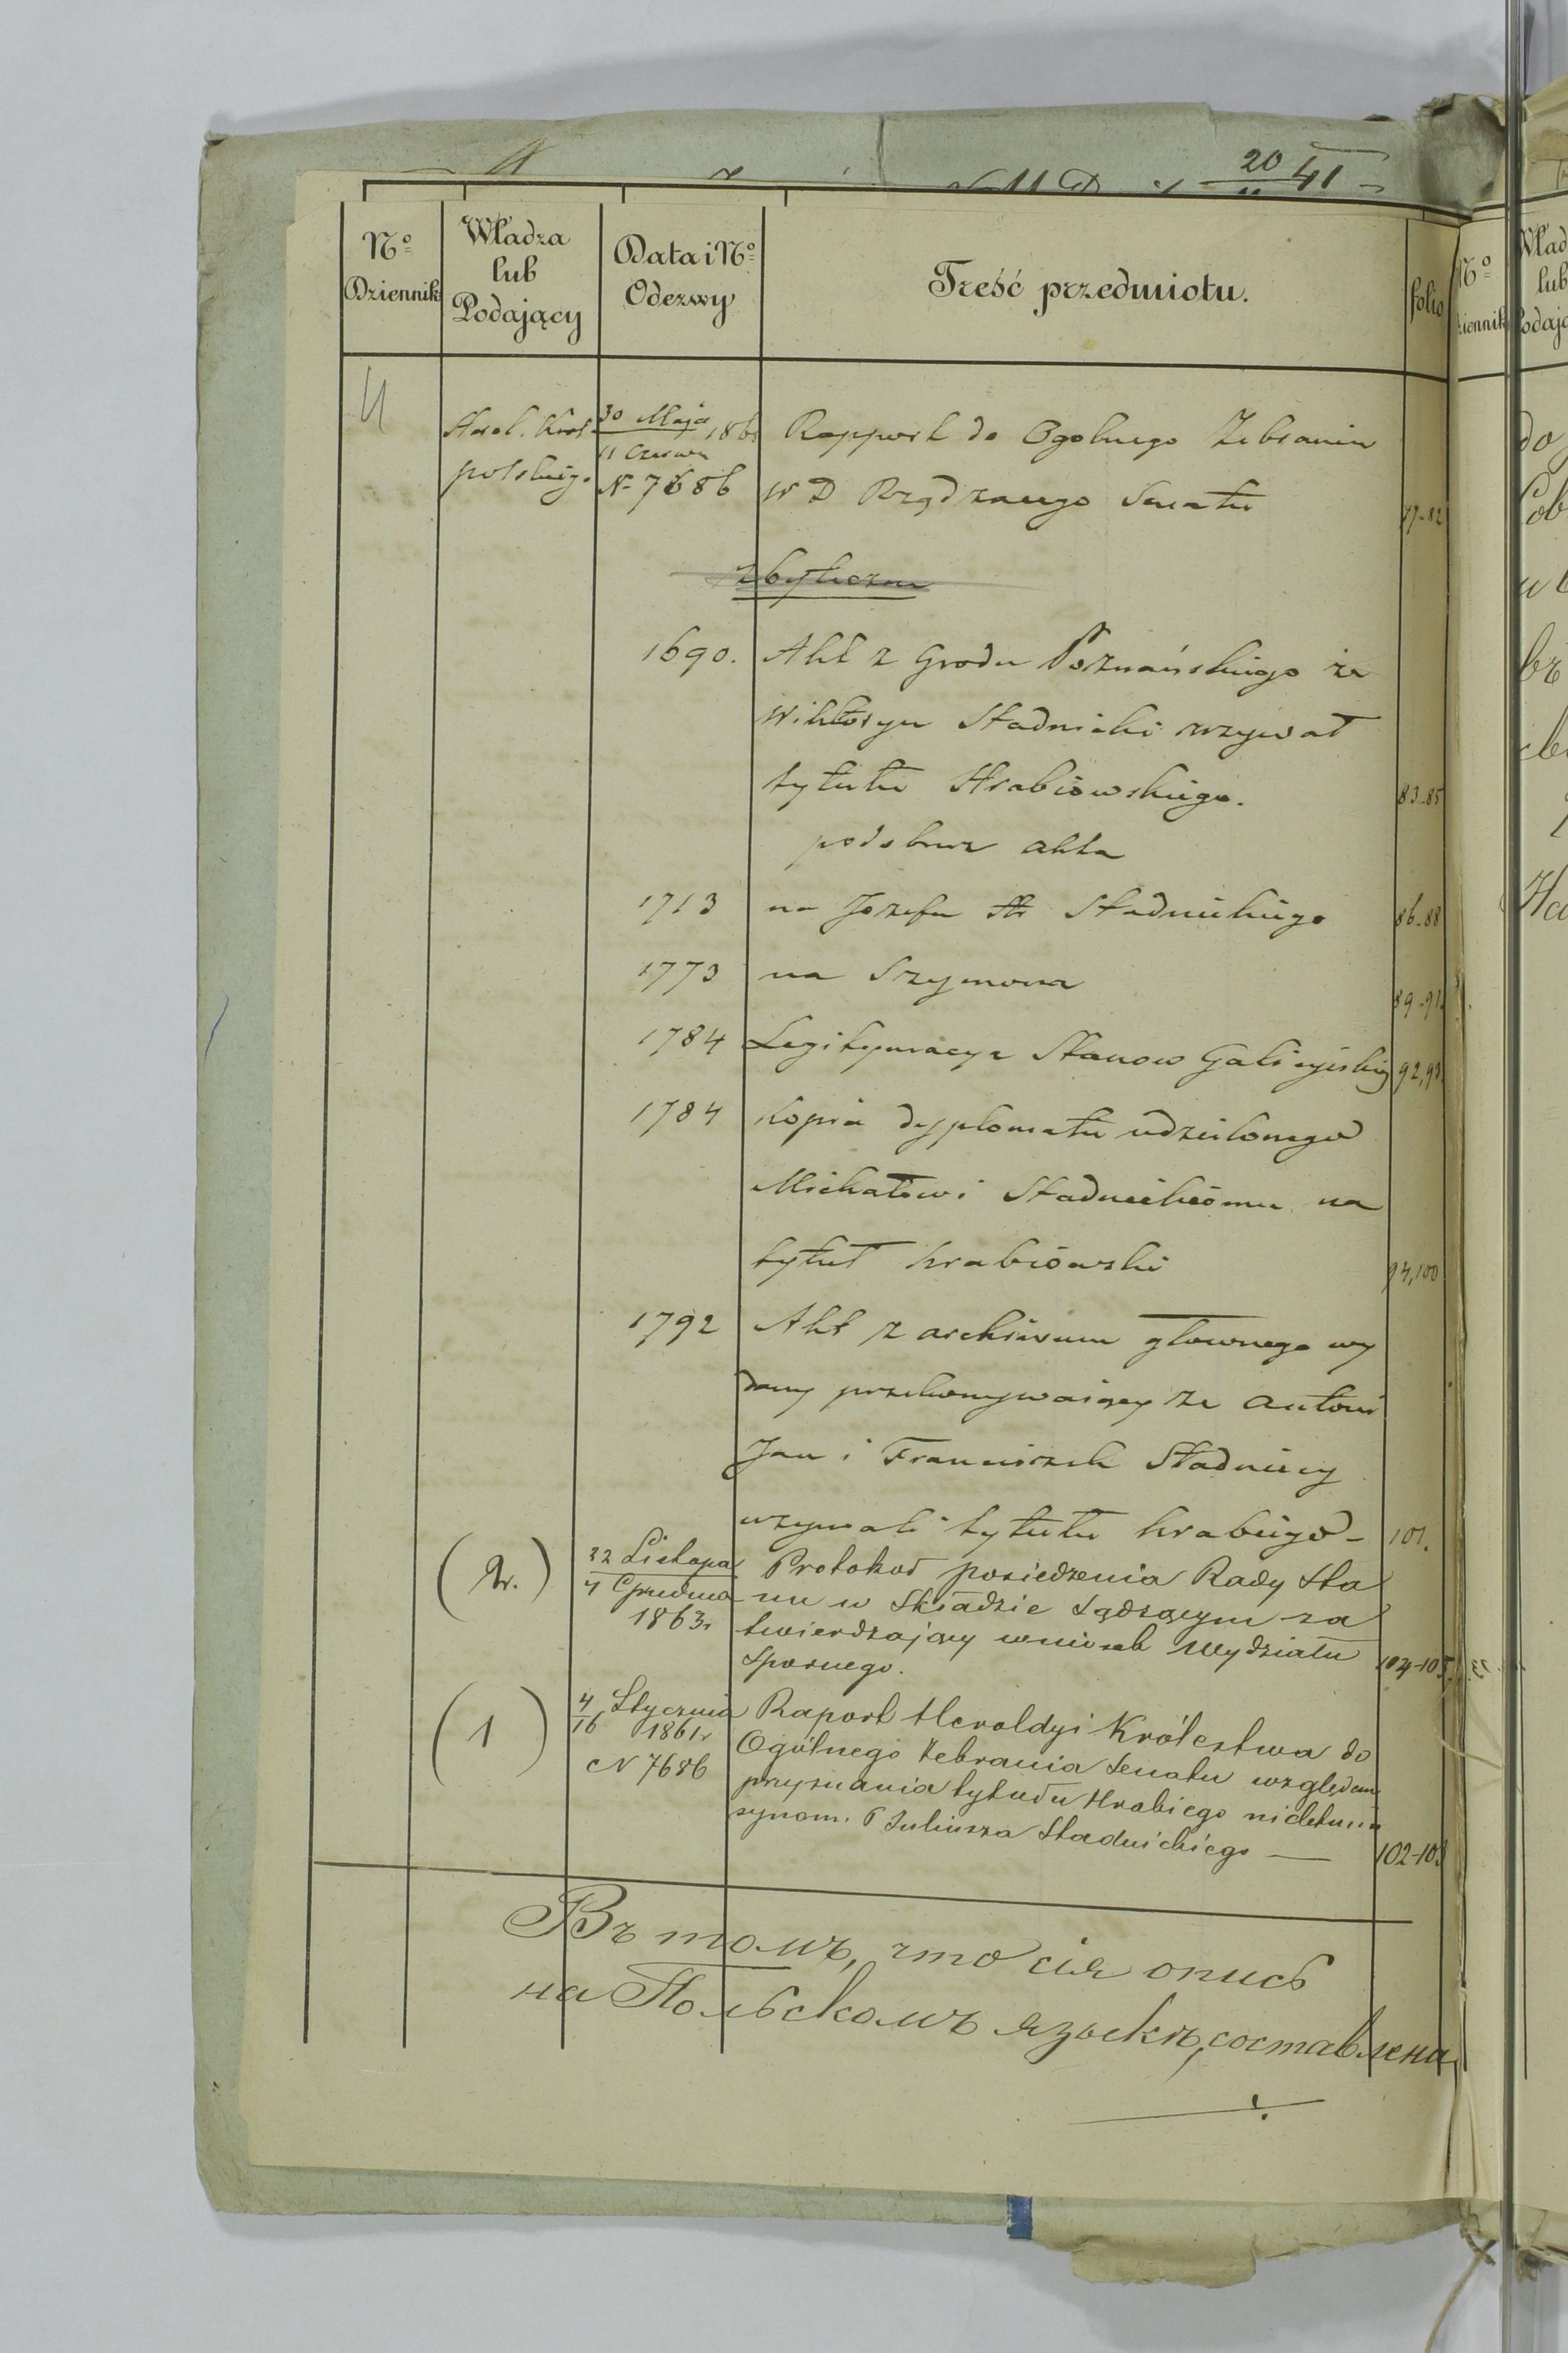 20 41
Nº Dziennik
Władza lub Podający
Data i Nº Odezwy
Treść przedmiotu.
folio
Herol. Król polskiego
30 Maja
11 Czerwca 186
N 7686
Rapport do Ogolnego Zebrania
W D Rządzącego Senatu 77-82
zbyteczne
1690. Akt z Grodu Poznańskiego że
Wiktoryn Stadnicki używał
tytułu Hrabiowskiego. 83-85
podobnez akta
1713 na Jozefa Hr Stadnickiego 86-88
1773 na Szymona 89-91
1784 Legitymacya Stanow Galicyjskich 92,93
1784 kopia dyplomatu udzielonego
Michałowi Stadnickiemu na
tytuł hrabiowski 94,100
1792 Akt z archiwum głownego wy
dany przekonywaiący że Antoni
Jan i Franciszek Stadniccy
używali tytułu hrabiego - 101.
(2.) 22 Listopa
4 Grudnia
1863r
Protokoł posiedzenia Rady Sta
nu w Składzie Sądzącym za
twierdzający wniosek Wydziału
Spornego. 104-105
(1) 4/16 Stycznia
1861r
N 7686
Raport Heroldyi Królestwa do
Ogólnego Zebrania Senatu względem
przyznania tytułu Hrabiego nieletnim
synom. Juliusza Stadnickiego — 102-103
Въ томъ, что сія опись
на Польскомъ языкѣ, составлена